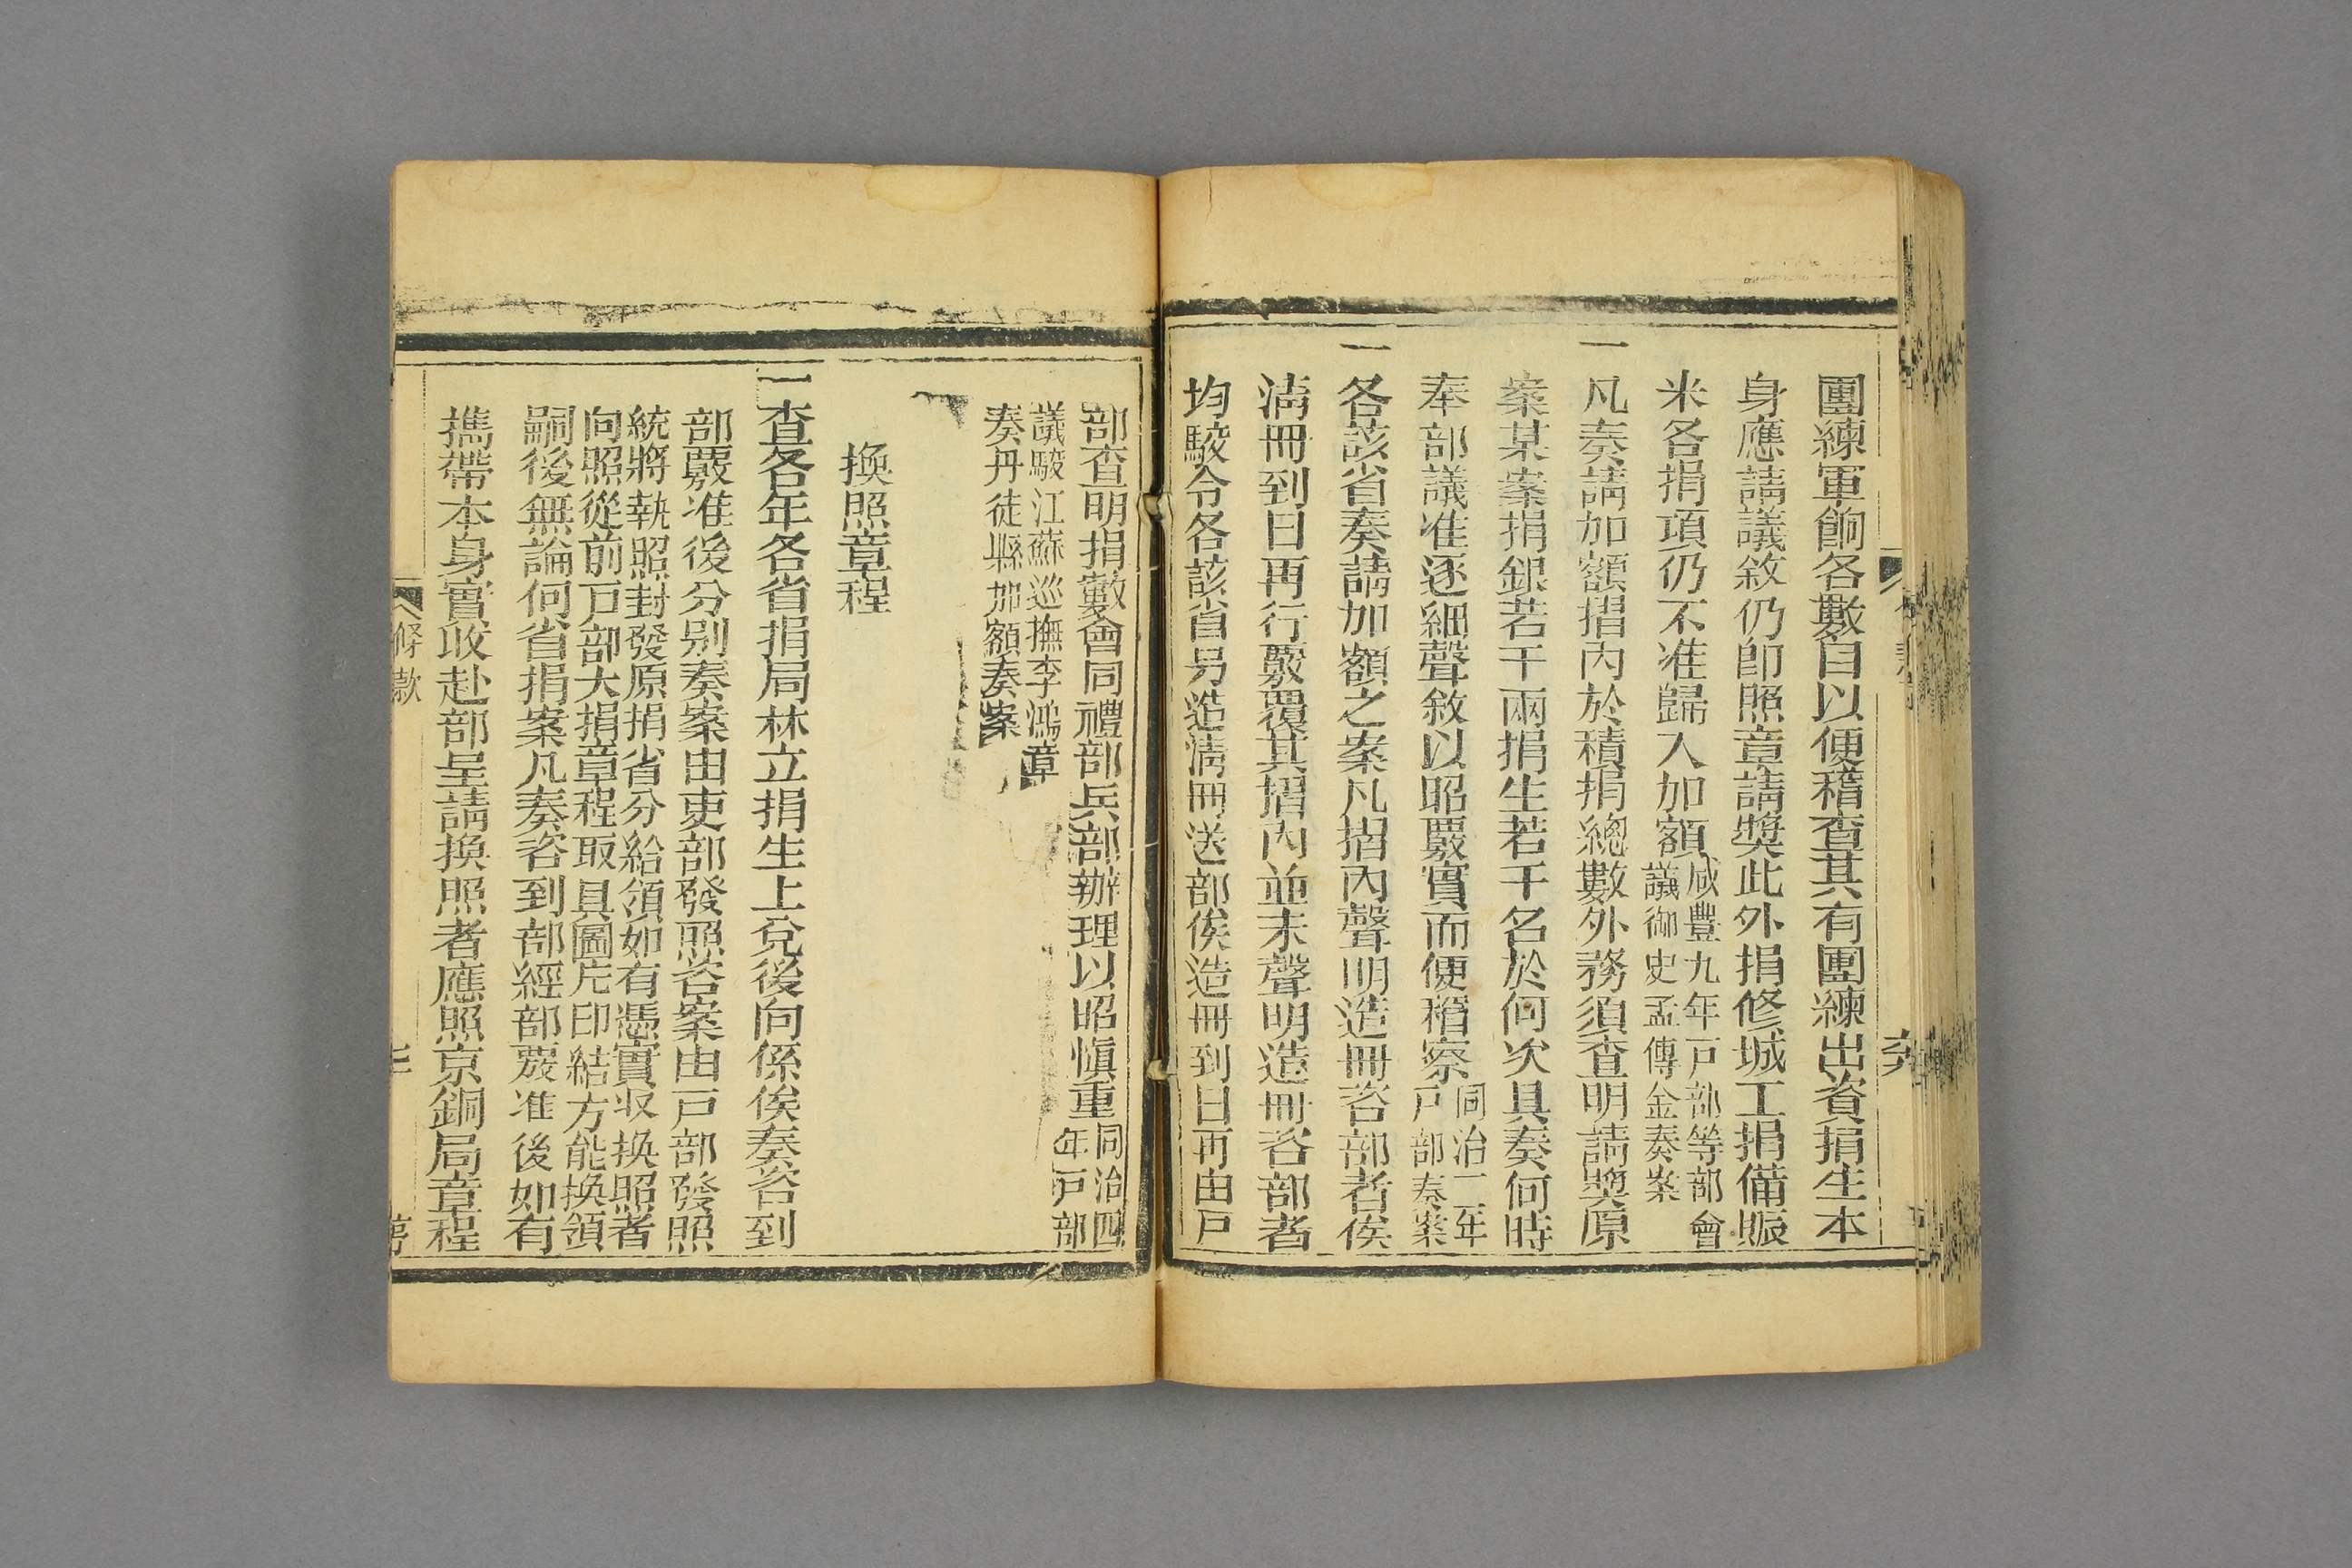 團練軍餉各數目以便稽查其有團練出資捐生本
身應請議敘仍即照章請獎此外捐修城工捐備賑
米各捐項仍不准歸入加額
咸豐九年戸部等部會
議御史孟傳金奏案
一凡奏請加額摺內於積捐總數外務須查明請獎原
案某案捐銀若干兩捐生若干名於何次具奏何時
奉部議准逐細聲敘以昭覈實而便稽察
同治二年
戸部奏案
一各該省奏請加額之案凡摺內聲明造冊咨部者俟
淸冊到日再行覈覆其摺內並未聲明造冊咨部者
均駮令各該省另造淸冊送部俟造冊到日再由戸
部查明捐數會同禮部兵部辦理以昭愼重
同治四
年戸部
議駮江蘇巡撫李鴻章
奏丹徒縣加額奏案
換照章程
一查各年各省捐局林立捐生上兌後向係俟奏咨到
部覈准後分别奏案由吏部發照咨案由戸部發照
統將執照封發原捐省分給領如有憑實収換照者
向照從前戸部大捐章程取具圖片印結方能換領
嗣後無論何省捐案凡奏咨到部經部覈准後如有
攜帶本身實收赴部呈請換照者應照京銅局章程
條款